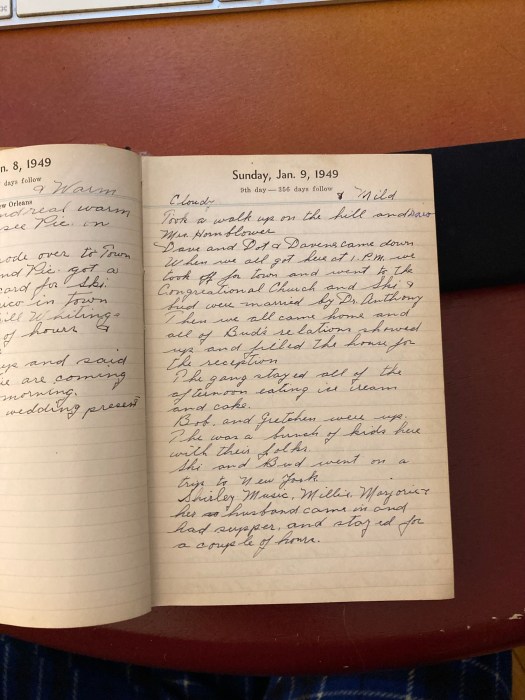 n. 8, 1949
days follow
& Warm
ew Orleans
nd real warm
see Pic. in
ode over to Town
nd Pic. got a
card for Ski
in Town
ill Whitings
of hours &
ys and said
ie are coming
morning.
wedding present
Sunday, Jan. 9, 1949
9th day—356 days follow
Cloudy & Mild
Took a walk up on the hill and saw
Mrs. Hornblower
Dave and Dot & Davens came down
When we all got here at 1. P.M. we
took off for town and went to the
Congregational Church and Ski &
bud were married by Dr. Anthony
Then we all came home and
all of Buds relations showed
up and filled the house for
the reception
The gang stayed all of the
afternoon eating ice cream
and cake.
Bob and Gretchen were up.
The was a bunch of kids here
with their folks.
Ski and Bud went on a
trip to New York
Shirley Music, Millie, Marjorie &
her husband came in and
had supper, and stayed for
a couple of hours.